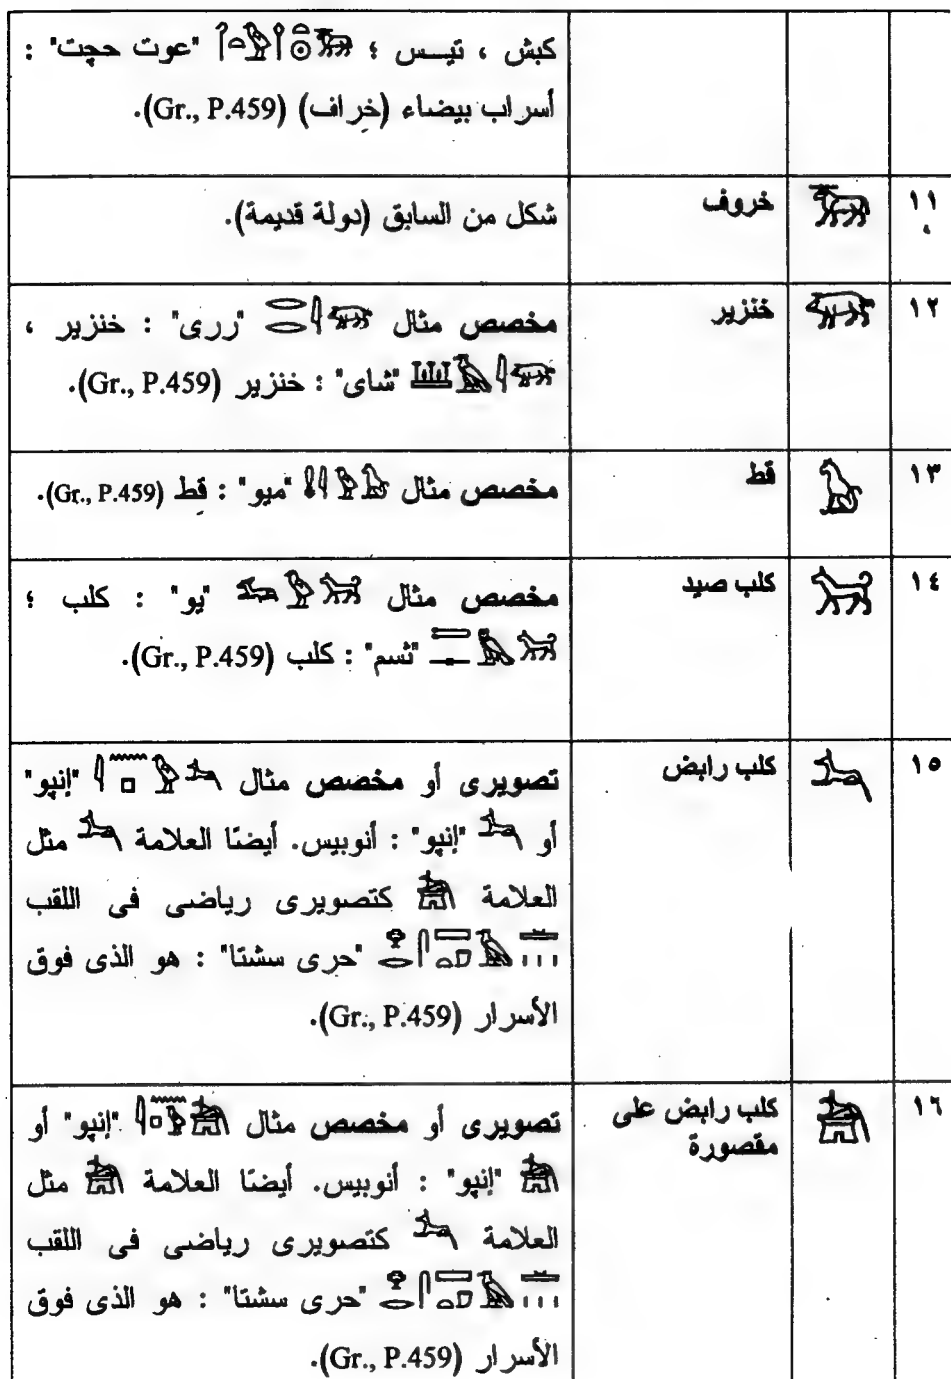 كبش ، تيـس ؛ "عوت حچت" :
أسراب بيضاء (خراف) (Gr., P.459).
١١ 𓃞 خروف شكل من السابق (دولة قديمة).
١٢ 𓃟 خنزير مخصص مثال 𓂋𓂋𓇋𓃟 "ررى" : خنزير ،
𓆷𓄿𓇋𓃟 "شاى" : خنزير (Gr., P.459).
١٣ 𓃠 قط مخصص مثال 𓏇𓇋𓅱𓃠 "ميو" : قط (Gr., P.459).
١٤ 𓃡 كلب صيد مخصص مثال 𓃛𓅱𓃡 "يو" : كلب ؛
𓍿𓊃𓅓𓃡 "ثسم" : كلب (Gr., P.459).
١٥ 𓃢 كلب رابض تصويرى أو مخصص مثال 𓇋𓈖𓊪𓅱𓃢 "إنپو"
أو 𓃢 "إنپو" : أنوبيس. أيضًا العلامة 𓃢 مثل
العلامة 𓃣 كتصويرى رياضى فى اللقب
"حرى سشتا" : هو الذى فوق
الأسرار (Gr., P.459).
١٦ 𓃣 كلب رابض على مقصورة تصويرى أو مخصص مثال 𓇋𓈖𓊪𓅱𓃣 "إنپو" أو
𓃣 "إنپو" : أنوبيس. أيضًا العلامة 𓃣 مثل
العلامة 𓃢 كتصويرى رياضى فى اللقب
"حرى سشتا" : هو الذى فوق
الأسرار (Gr., P.459).